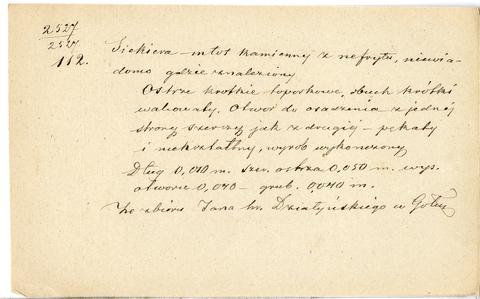 2527
2527
112. Siekiera-młot kamienny z nefrytu, niewia-
domo gdzie znaleziony
Ostrze krótkie toporkowe, obuch krótki
walcowaty. Otwór do osadzenia z jednej
strony szerszy jak z drugiéj — pękaty
i niekształtny, wyrób wykończony
Dług 0,010 m. szer. ostrza 0,050 m. wys.
otworu 0,040 — grub. 0,040 m.
Ze zbioru Jana hr. Działyńskiego w Gołuch